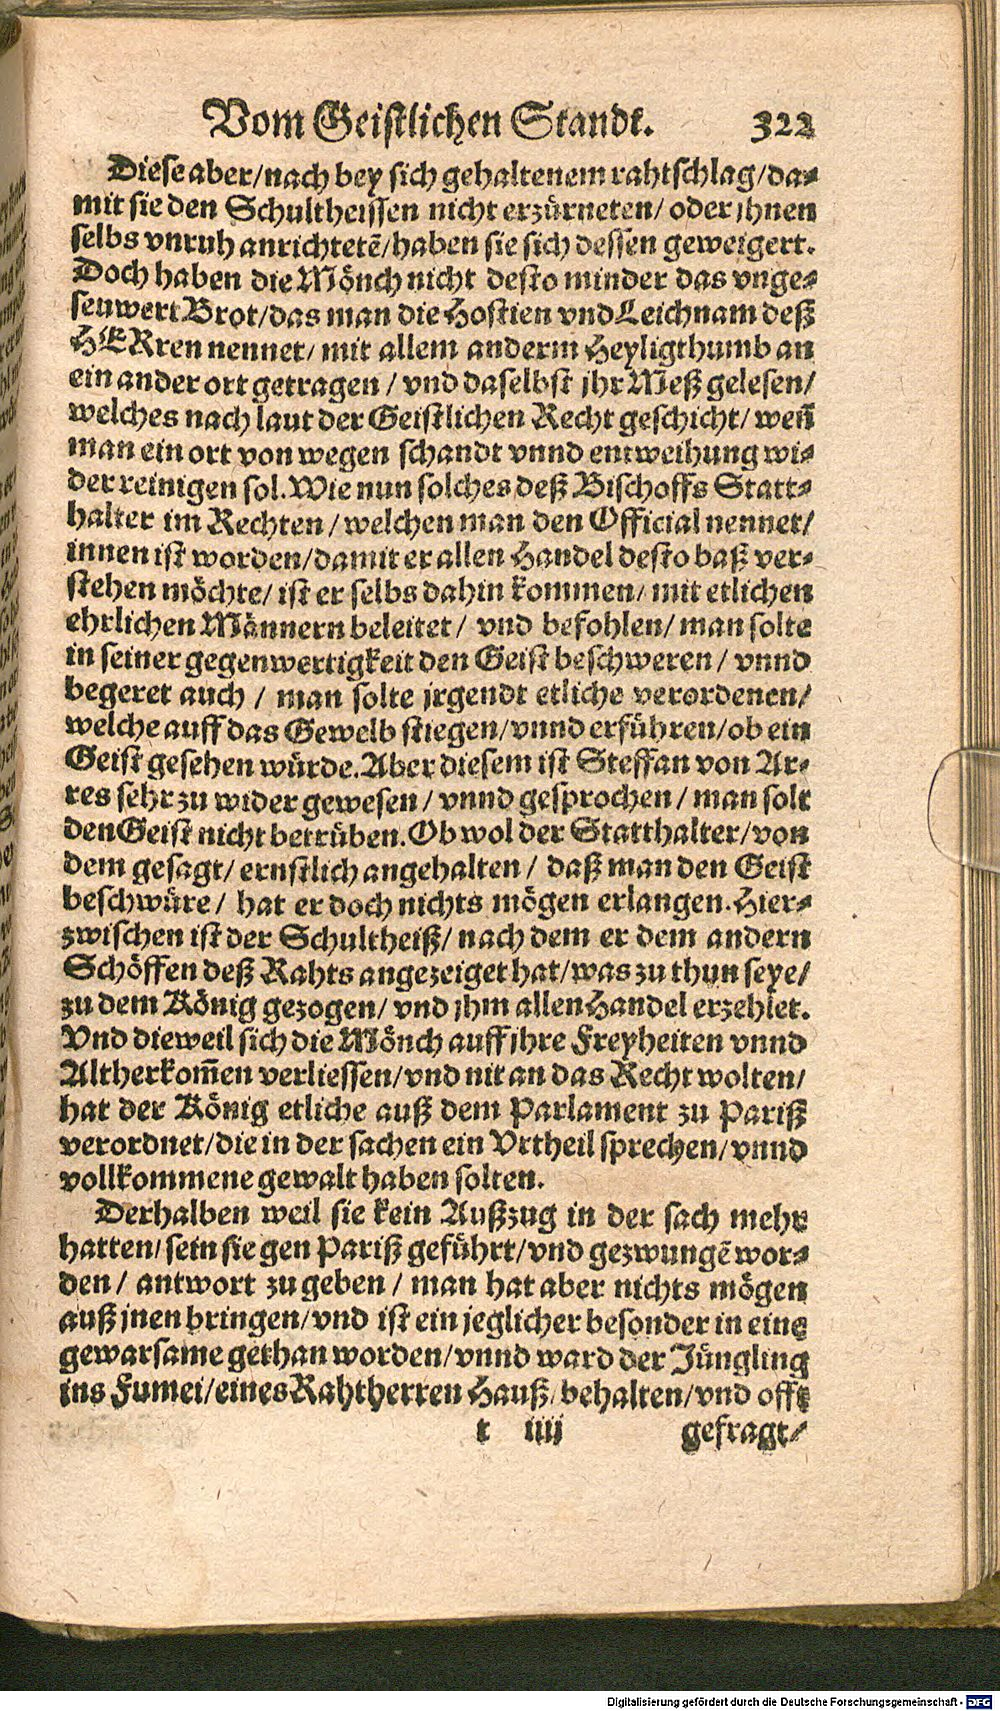 Vom Geistlichen Standt. 322
Diese aber/nach bey sich gehaltenem rahtschlag/da-
mit sie den Schultheissen nicht erzürneten/ oder jhnen
selbs vnruh anrichtetẽ/haben sie sich dessen geweigert.
Doch haben die Mönch nicht desto minder das vnge-
seuwert Brot/das man die Hostien vnd Leichnam deß
HERren nennet/ mit allem anderm Heyligthumb an
ein ander ort getragen / vnd daselbst jhr Meß gelesen/
welches nach laut der Geistlichen Recht geschicht/ weñ
man ein ort von wegen schandt vnnd entweihung wi-
der reinigen sol. Wie nun solches deß Bischoffs Statt-
halter im Rechten / welchen man den Official nennet/
innen ist worden/damit er allen Handel desto baß ver-
stehen möchte/ ist er selbs dahin kommen/ mit etlichen
ehrlichen Männern beleitet/ vnd befohlen/ man solte
in seiner gegenwertigkeit den Geist beschweren / vnnd
begeret auch / man solte jrgendt etliche verordenen/
welche auff das Gewelb stiegen/vnnd erführen/ob ein
Geist gesehen würde. Aber diesem ist Steffan von Ar-
res sehr zu wider gewesen / vnnd gesprochen / man solt
den Geist nicht betrüben. Ob wol der Statthalter/von
dem gesagt/ ernstlich angehalten / daß man den Geist
beschwüre / hat er doch nichts mögen erlangen. Hier-
zwischen ist der Schultheiß/ nach dem er dem andern
Schöffen deß Rahts angezeiget hat/was zu thun seye/
zu dem König gezogen/ vnd jhm allen Handel erzehlet.
Vnd dieweil sich die Mönch auff jhre Freyheiten vnnd
Altherkom̃en verliessen/vnd nit an das Recht wolten/
hat der König etliche auß dem Parlament zu Pariß
verordnet/die in der sachen ein Vrtheil sprechen/vnnd
vollkommene gewalt haben solten.
Derhalben weil sie kein Außzug in der sach mehr
hatten/ sein sie gen Pariß geführt/vnd gezwungẽ wor-
den / antwort zu geben / man hat aber nichts mögen
auß jnen bringen/vnd ist ein jeglicher besonder in eine
gewarsame gethan worden/vnnd ward der Jüngling
ins Fumei/eines Rahtherren Hauß/ behalten/vnd offt
t iiij gefragt-
Digitalisierung gefördert durch die Deutsche Forschungsgemeinschaft - DFG